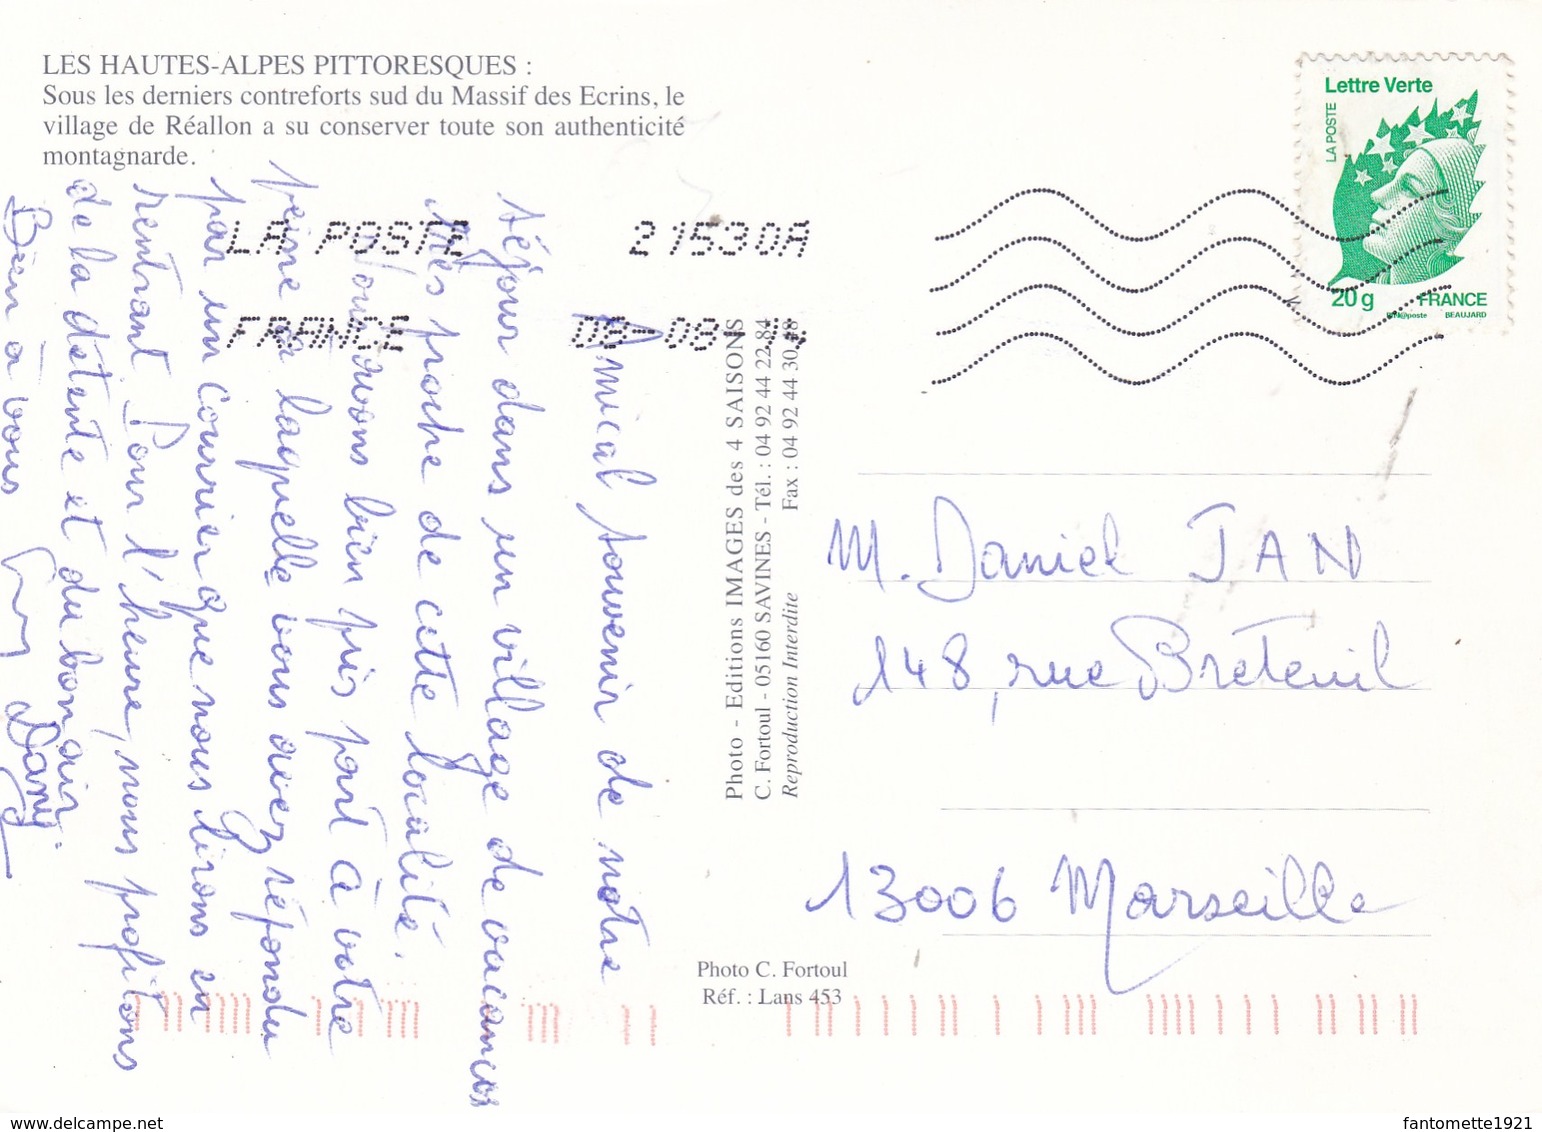 LES HAUTES-ALPES PITTORESQUES :
Sous les derniers contreforts sud du Massif des Ecrins, le
village de Réallon a su conserver toute son authenticité
montagnarde.
Lettre Verte
LA POSTE
20 g FRANCE
BEAUJARD
LA POSTE 21530A
FRANCE 08-08-14
Amical souvenir de notre
séjour dans un village de vacances
très proche de cette localité.
Nous avons bien pris part à votre
peine à laquelle vous avez répondu
par un courrier que nous lirons en
rentrant Pour l'heure, nous profitons
de la détente et du bon air.
Bien à vous
Dany
Photo - Editions IMAGES des 4 SAISONS
C. Fortoul - 05160 SAVINES - Tél. : 04 92 44 22 84
Reproduction Interdite Fax : 04 92 44 30 48
M. Daniel JAN
148, rue Breteuil
13006 Marseille
Photo C. Fortoul
Réf. : Lans 453
fantomette1921